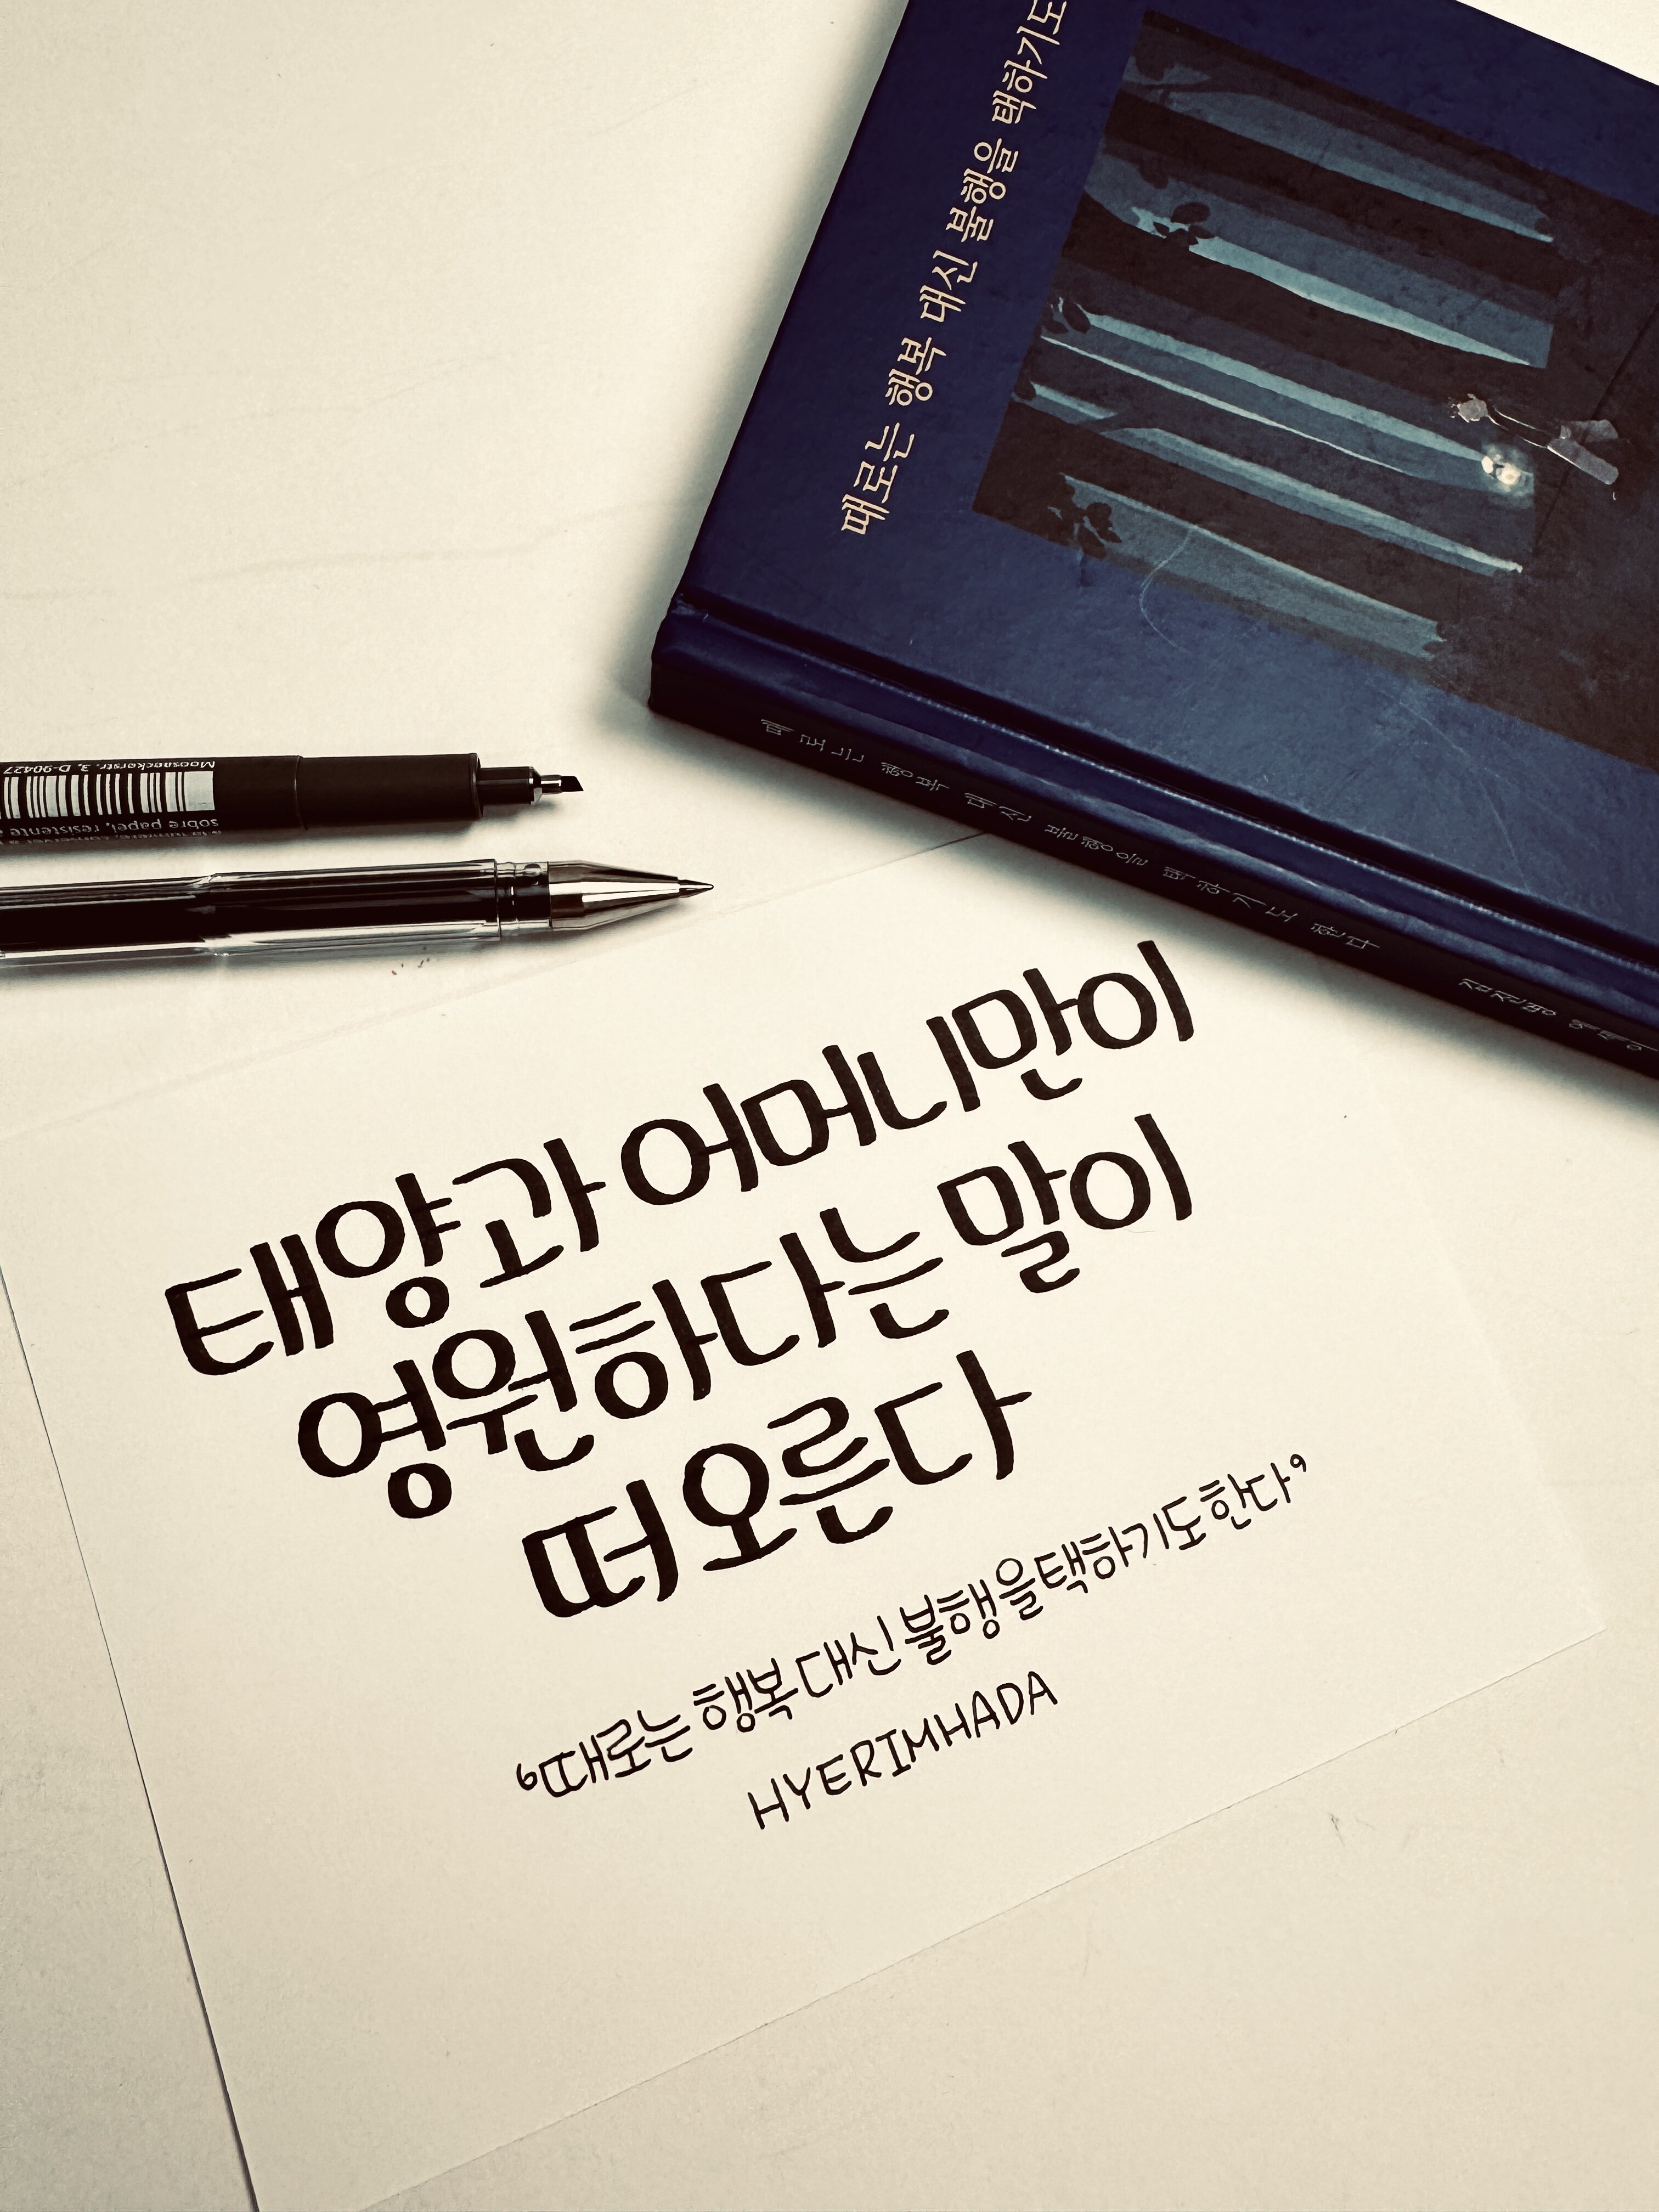 때로는 행복 대신 불행을 택하기도
때로는 행복 대신 불행을 택하기도 한다
Moosaeckerstr. 3, D-90427
sobre papel, resistente a
태양과 어머니만이
영원하다는 말이
떠오른다
‘때로는 행복 대신 불행을 택하기도 한다’
HYERIMHADA